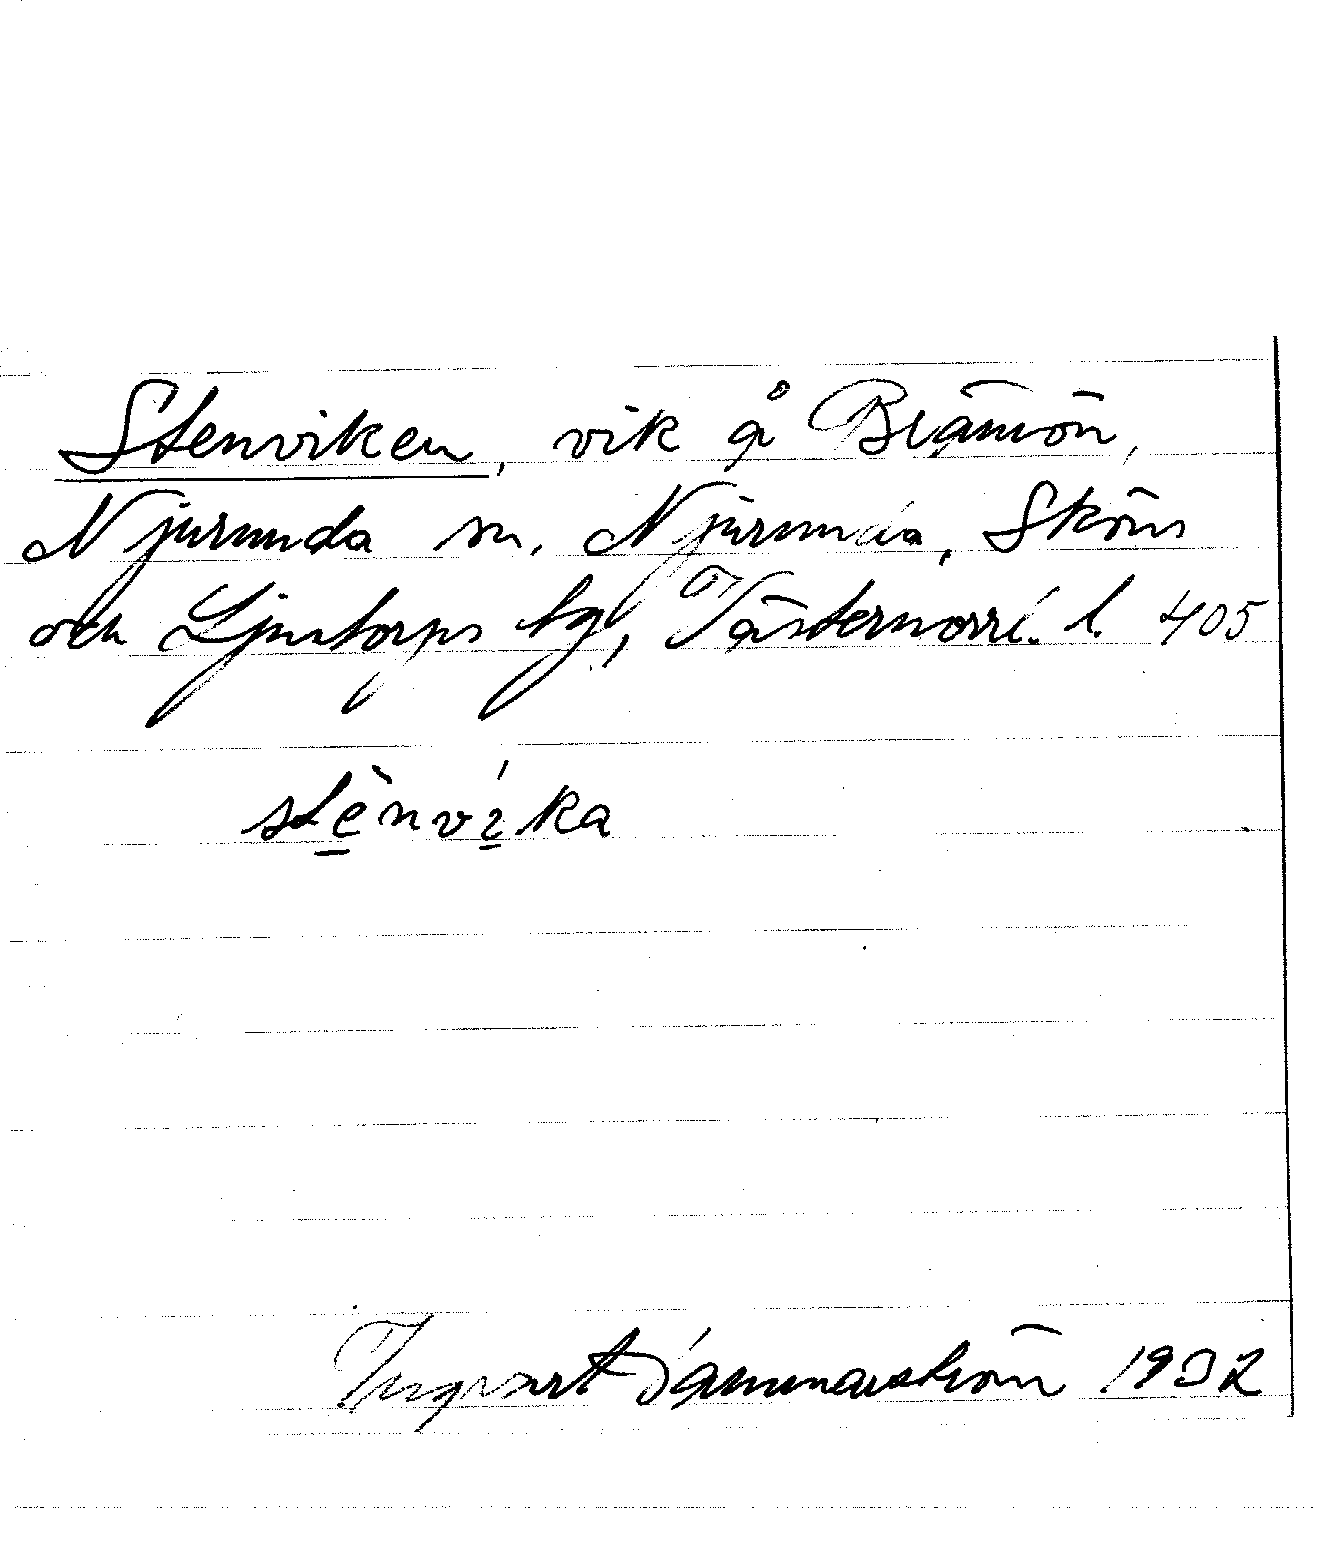 Stenviken, vik å Brämön,
Njurunda sn. Njurunda, Sköns
och Ljustorps tg, Västernorrl. l. 405
stènvíka
Ingvart 1932